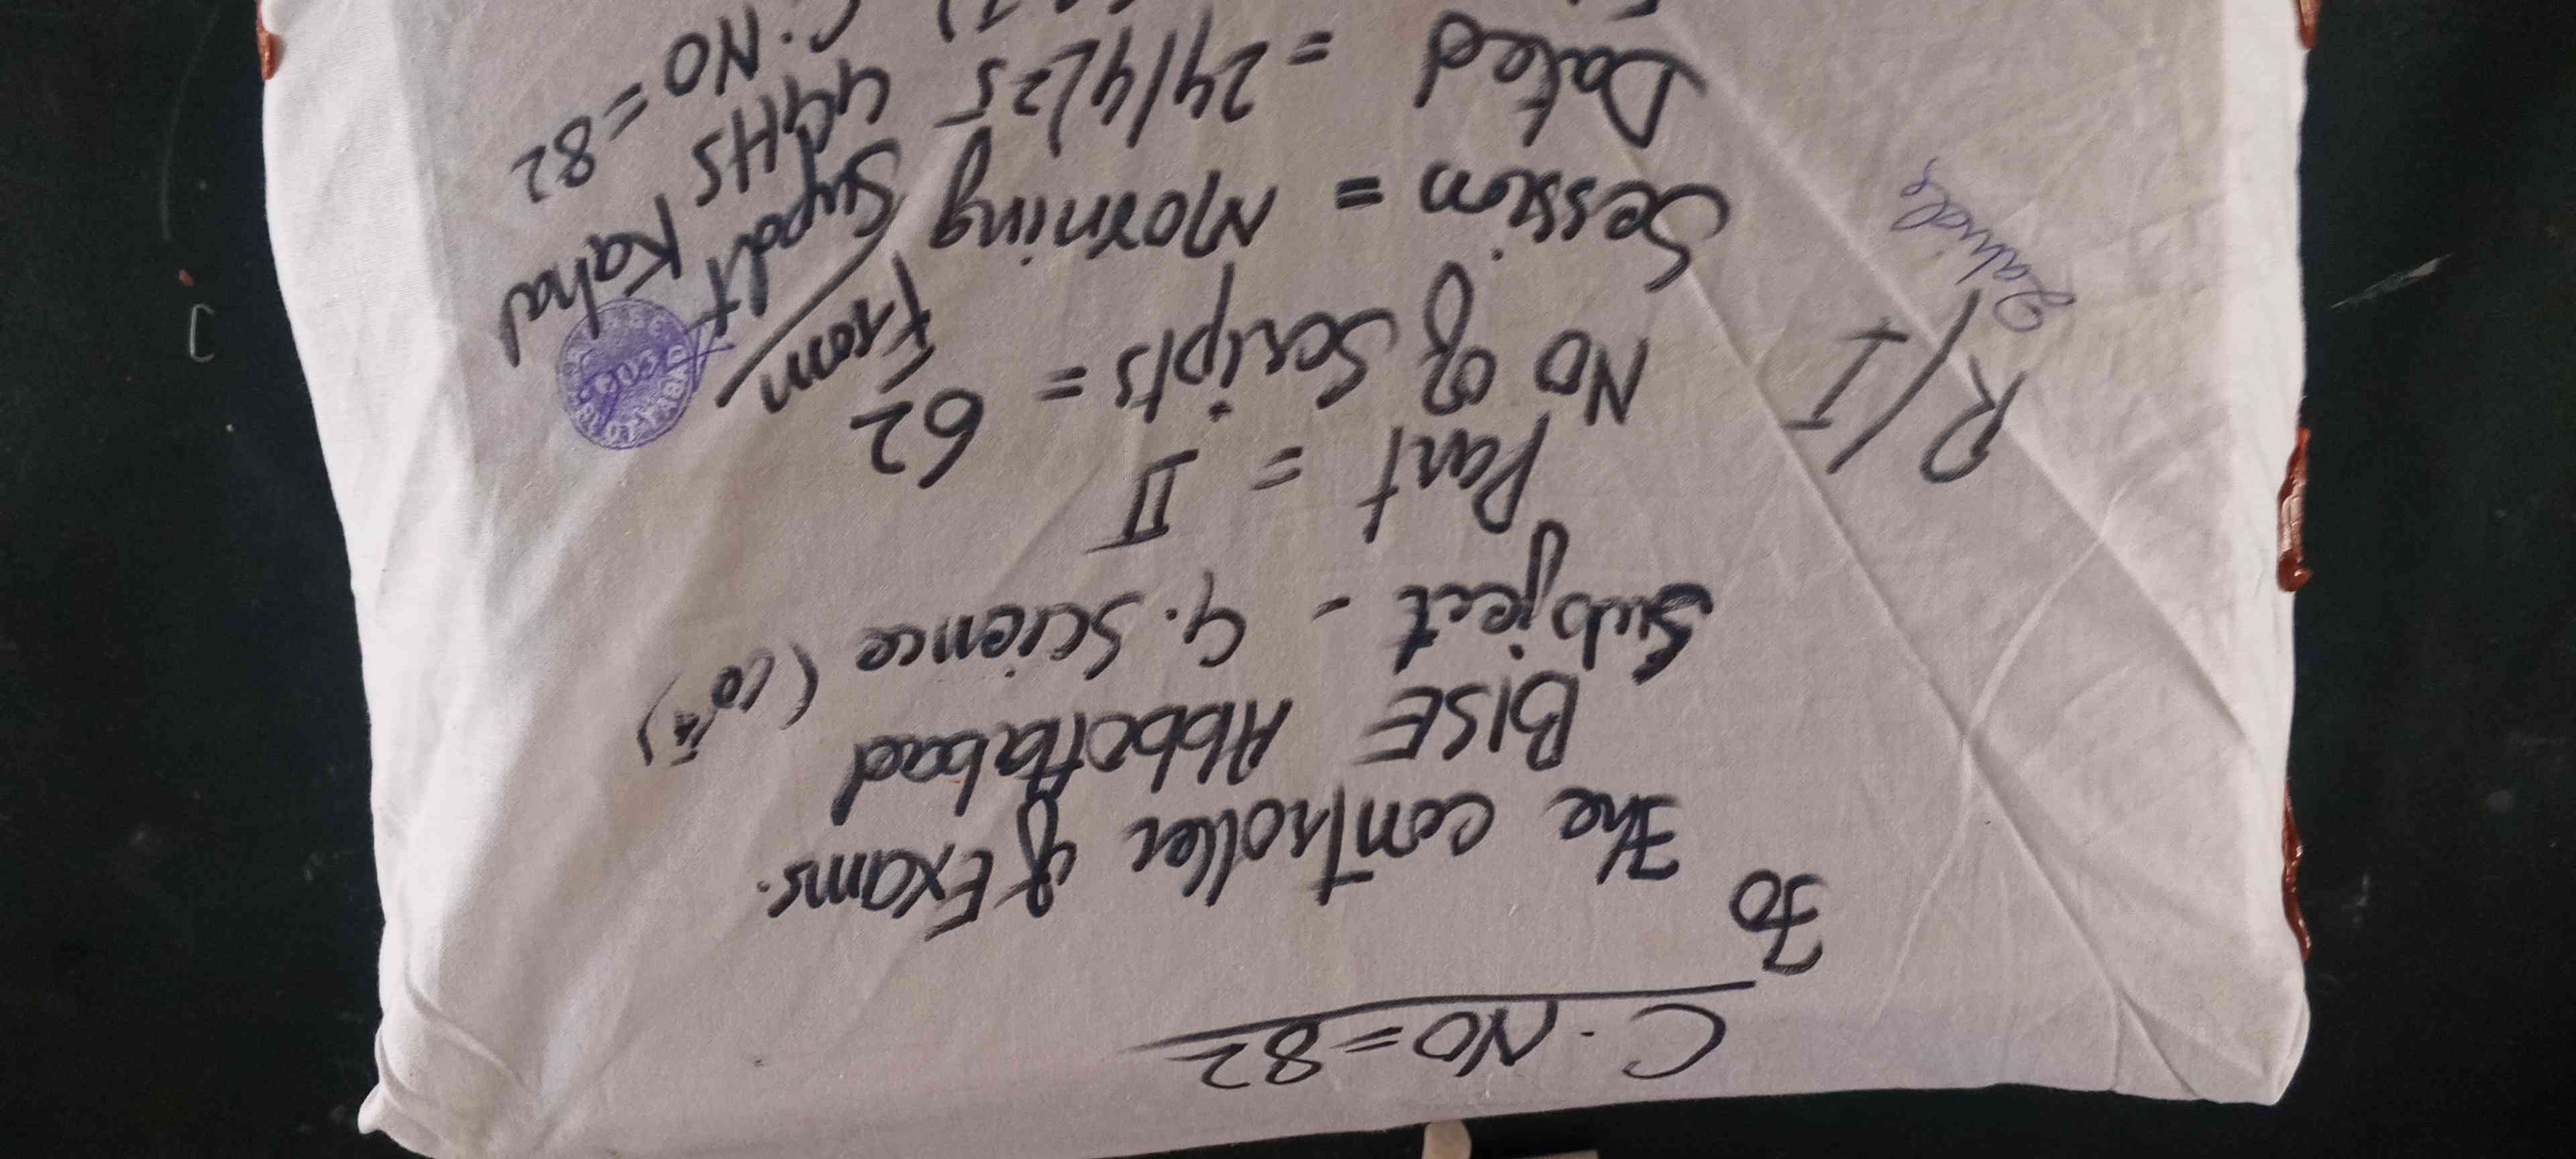 C.NO=82
To
The controller of Exams.
BISE Abbottabad
Subject - G. Science (10th)
Part = II
No of Scripts = 62
Session = Morning
Dated = 24/4/25
R/I
From
Supdt
GGHS Kahal
C.NO=82